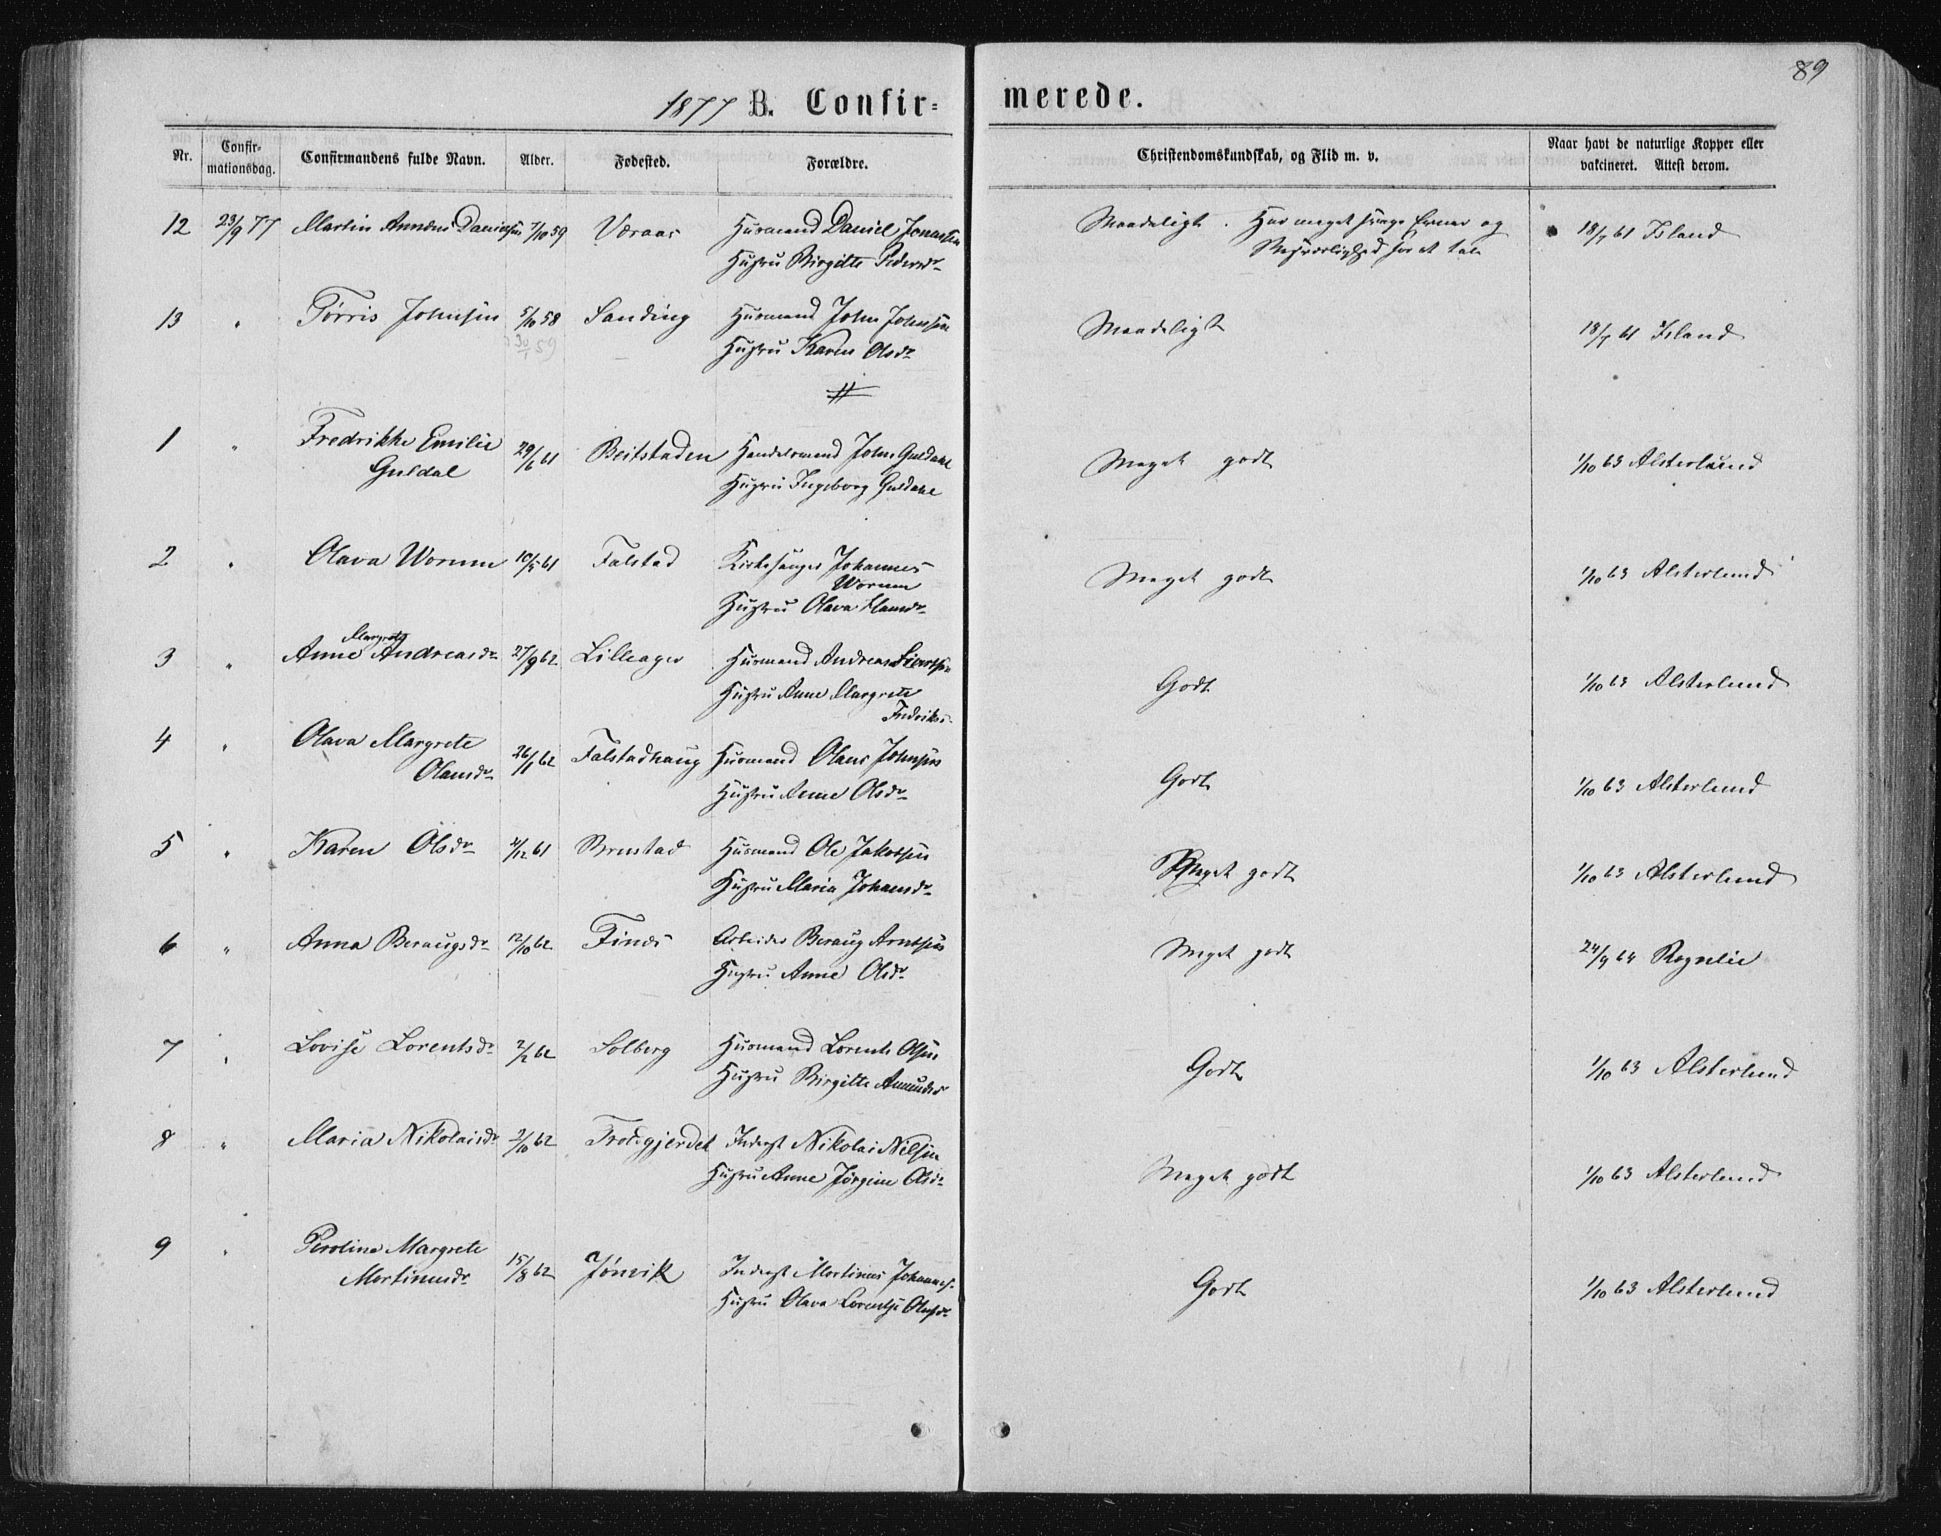 89
1877 B. Confir- merede.
Nr. Confir-mationsdag. Confirmandens fulde Navn. Alder. Fødested. Forældre. Christendomskundskab, og Flid m. v. Naar havt de naturlige Kopper eller vakcineret. Attest derom.
12 23/9 77 Martin Danielsen 7/10 59 Væraas Husmand Daniel Jonassen Maadeligt. Har meget svage Evner og 18/7 61 Island
Hustru Birgitte Pedersdr Besværlighed for at tale
13 " Tørris Johnsen 5/10 58 Sanding Husmand John Johnsen Maadeligt 18/7 61 Island
59 Hustru Karen Olsdr
1 " Fredrikke Emilie 29/6 61 Beitstaden Handelsmand John Guldahl Meget godt 1/10 63 Alsterlund
Guldal Hustru Ingeborg Guldahl
2 " Olava Wornm 10/5 61 Falstad Kirkesanger Johannes Meget godt 1/10 63 Alsterlund
Wornm
Hustru Olava Hansdr
3 " Anne Margrete Andreasdr 27/9 62 Lilleager Husmand Andreas Godt 1/10 63 Alsterlund
Hustru Anne Margrete
Fredriks-
4 " Olava Margrete 26/1 62 Falstadhaug Husmand Olaus Johnsen Godt 1/10 63 Alsterlund
Olausdr Hustru Anne Olsdr
5 " Karen Olsdr /12 61 Brustad Husmand Ole Jakobsen Meget godt 1/10 63 Alsterlund
Hustru Maria Johansdr
6 " Anna Beraugsdr 12/10 62 Finds Arbeider Beraug Arntsen Meget godt 24/9 64 Rognlie
Hustru Anne Olsdr
7 " Lovise Lorentsdr 2/2 62 Solberg Husmand Lorents Olsen Godt 1/10 63 Alsterlund
Hustru Birgitte Amundsdr
8 " Maria Nikolaisdr 2/10 62 Trodsgjerdet Inderst Nikolai Nilsen Meget godt 1/10 63 Alsterlund
Hustru Anne Jørgine Olsdr
9 " Peroline Margrete 15/8 62 Jønvik Inderst Martinus Johannes- Godt 1/10 63 Alsterlund
Martinusdr Hustru Olava Lorentse Olausdr